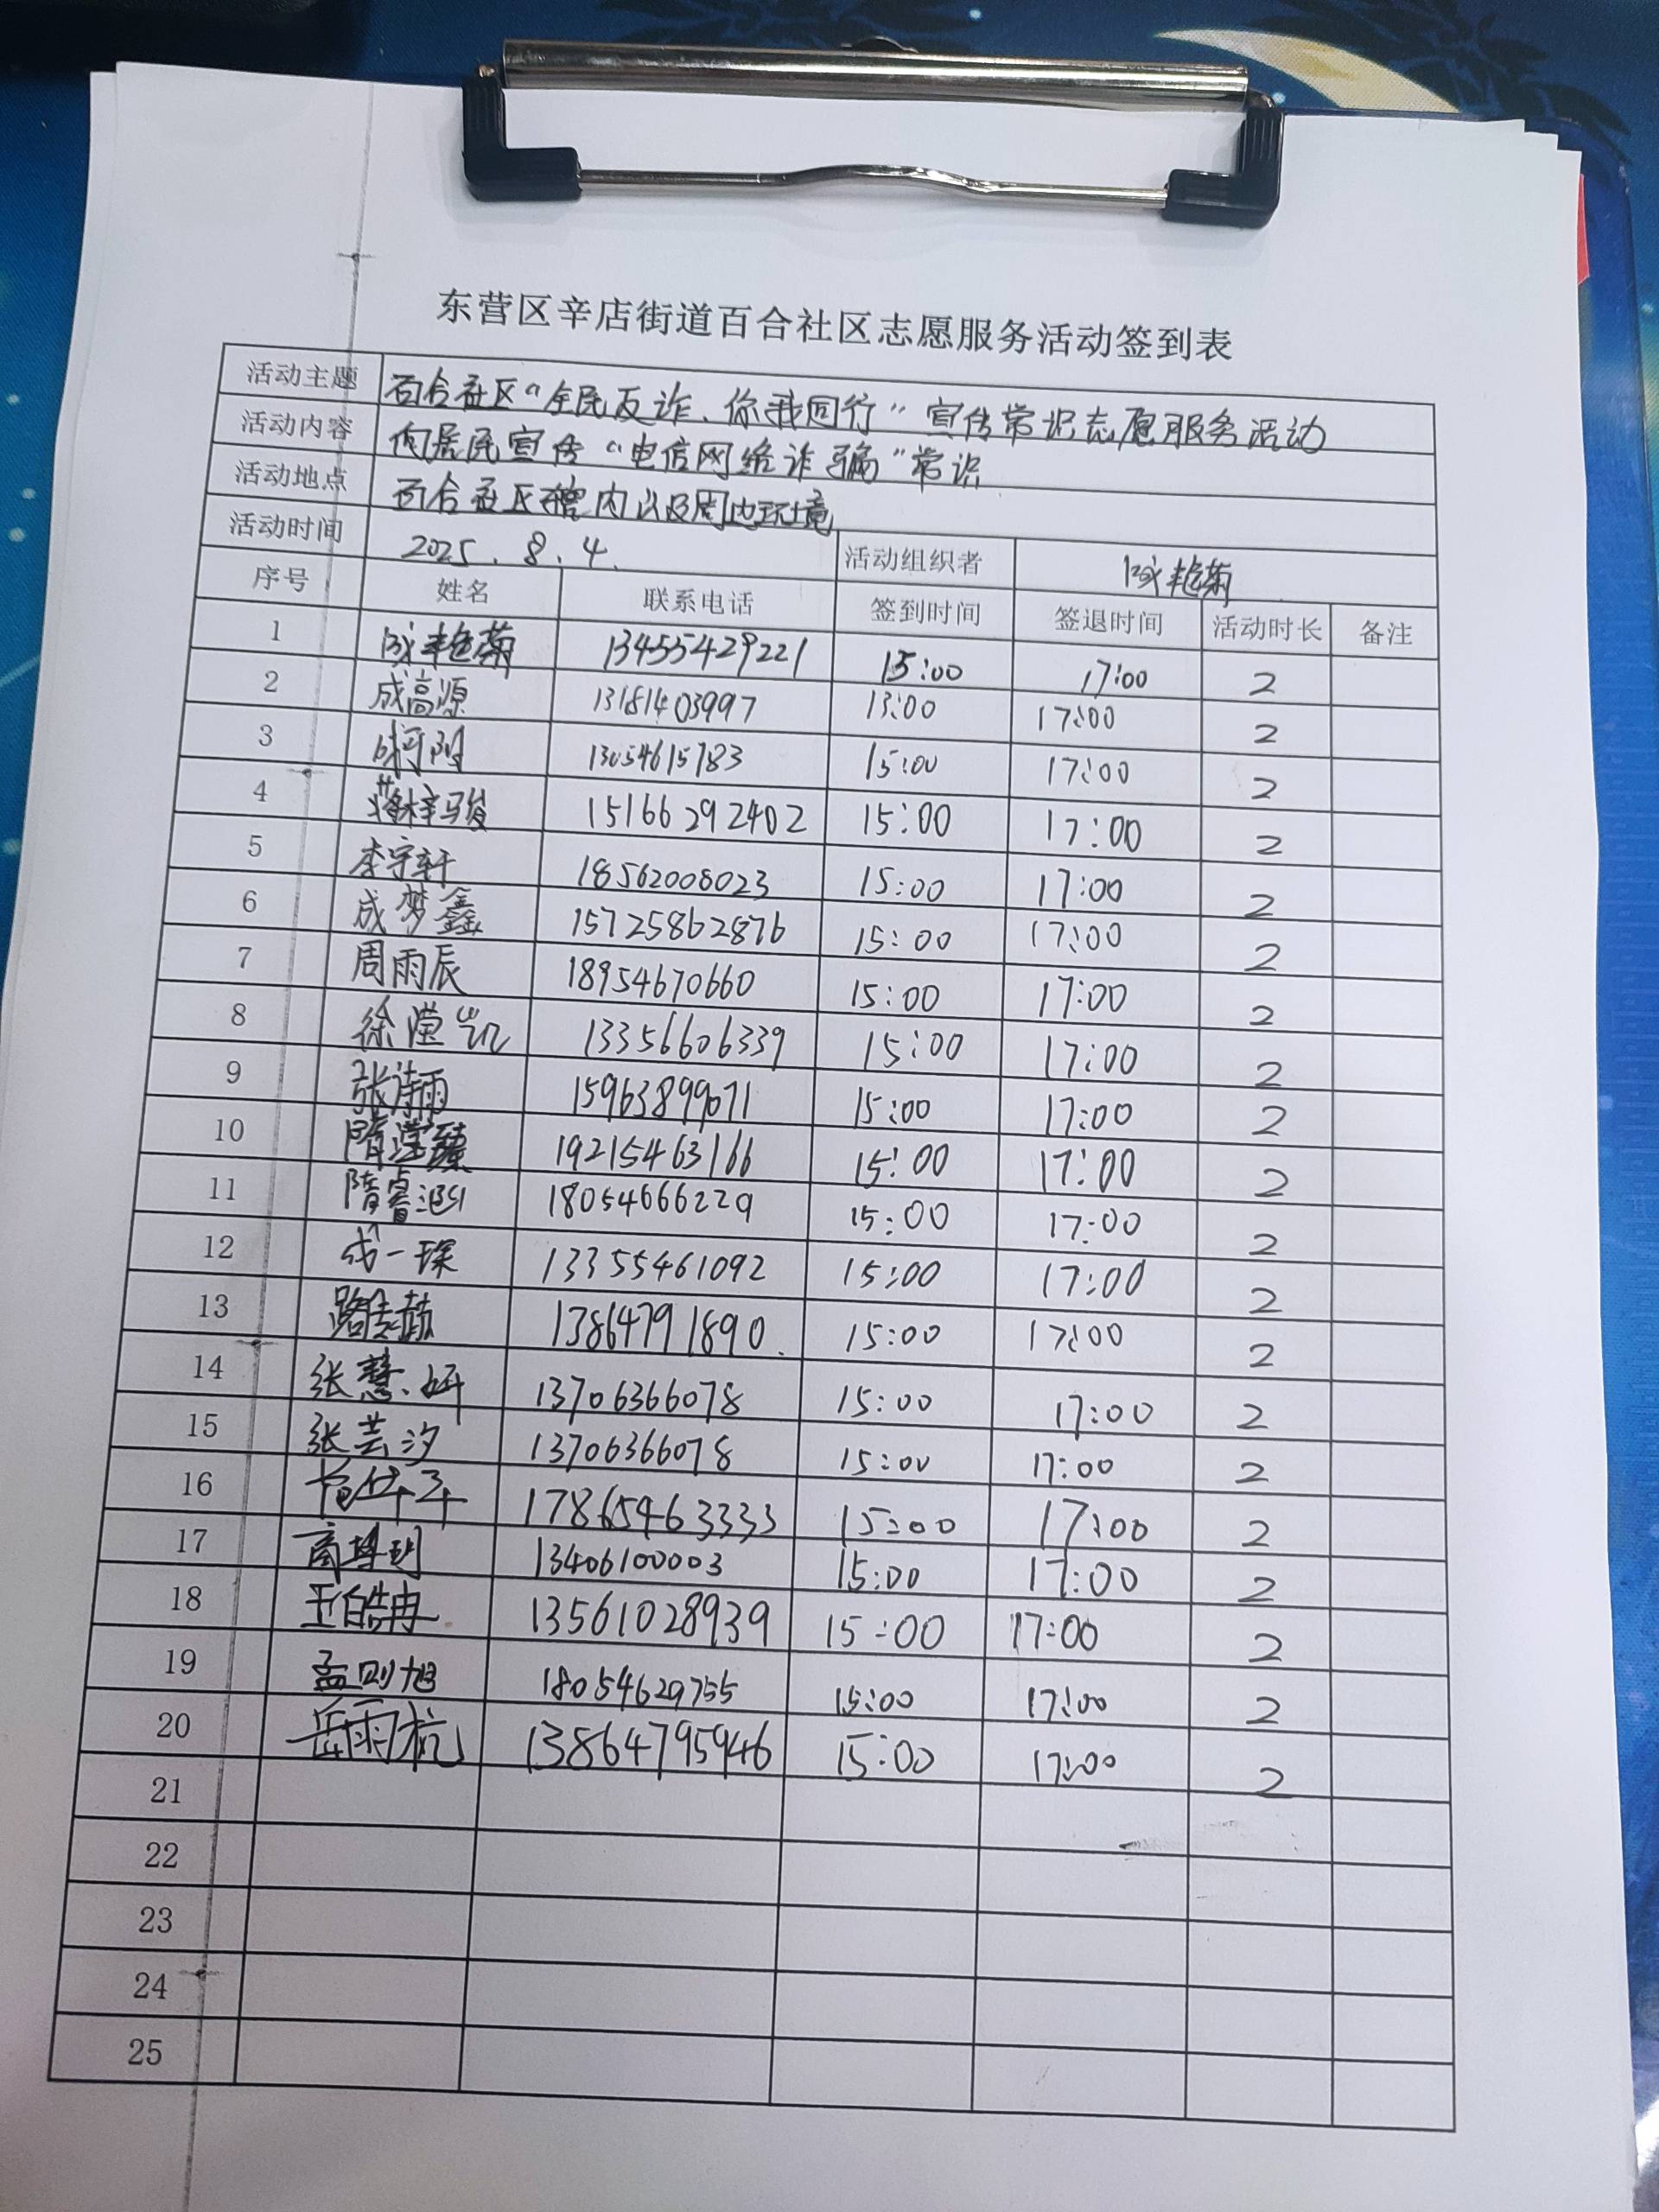 东营区辛店街道百合社区志愿服务活动签到表
活动主题 百合社区“全民反诈、你我同行”宣传常识志愿服务活动
活动内容 向居民宣传“电信网络诈骗”常识
活动地点 百合社区辖内以及周边环境
活动时间 2025.8.4. 活动组织者
序号 姓名 联系电话 签到时间 签退时间 活动时长 备注
1 13455429221 15:00 17:00 2
2 成高源 13181403997 13:00 17:00 2
3 13054615783 15:00 17:00 2
4 15166292402 15:00 17:00 2
5 李宇轩 18562008023 15:00 17:00 2
6 成梦鑫 15725862876 15:00 17:00 2
7 周雨辰 18954670660 15:00 17:00 2
8 徐滢凯 13356606339 15:00 17:00 2
9 张诗雨 15963899071 15:00 17:00 2
10 19215463166 15:00 17:00 2
11 18054666229 15:00 17:00 2
12 成一琛 13355461092 15:00 17:00 2
13 13864791890. 15:00 17:00 2
14 张慧妍 13706366078 15:00 17:00 2
15 张芸汐 13706366078 15:00 17:00 2
16 17865463333 15:00 17:00 2
17 13406100003 15:00 17:00 2
18 王皓冉 13561028939 15:00 17:00 2
19 孟则旭 18054629755 15:00 17:00 2
20 岳雨杭 13864795946 15:00 17:00 2
21
22
23
24
25